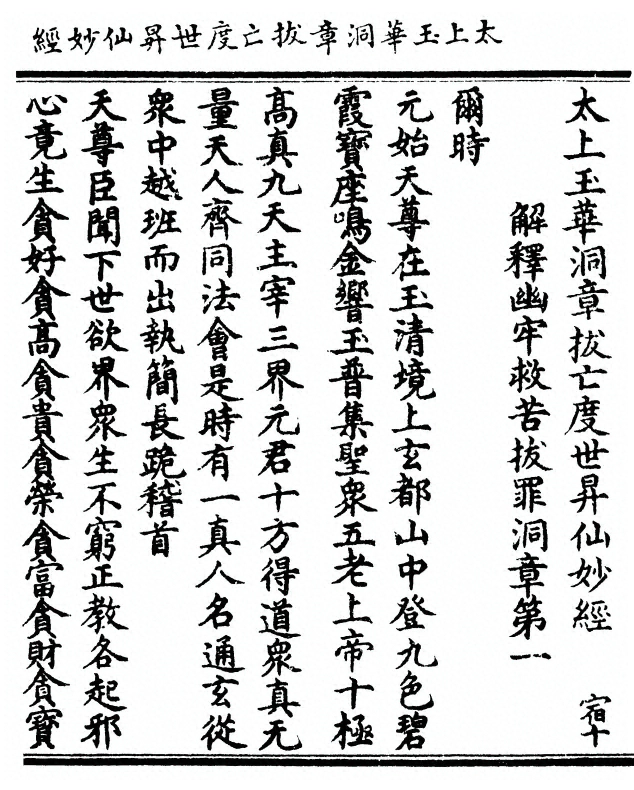 太上玉華洞章拔亡度世昇仙妙經
太上玉華洞章拔亡度世昇仙妙經 宿十
解釋幽牢救苦拔罪洞章第一
爾時
元始天尊在玉清境上玄都山中登九色碧
霞寶座鳴金響玉普集聖衆五老上帝十極
高真九天主宰三界元君十方得道衆真无
量天人齊同法會是時有一真人名通玄從
衆中越班而出執簡長跪稽首
天尊臣聞下世欲界衆生不窮正教各起邪
心竟生貪好貪高貪貴貪榮貪富貪財貪寶